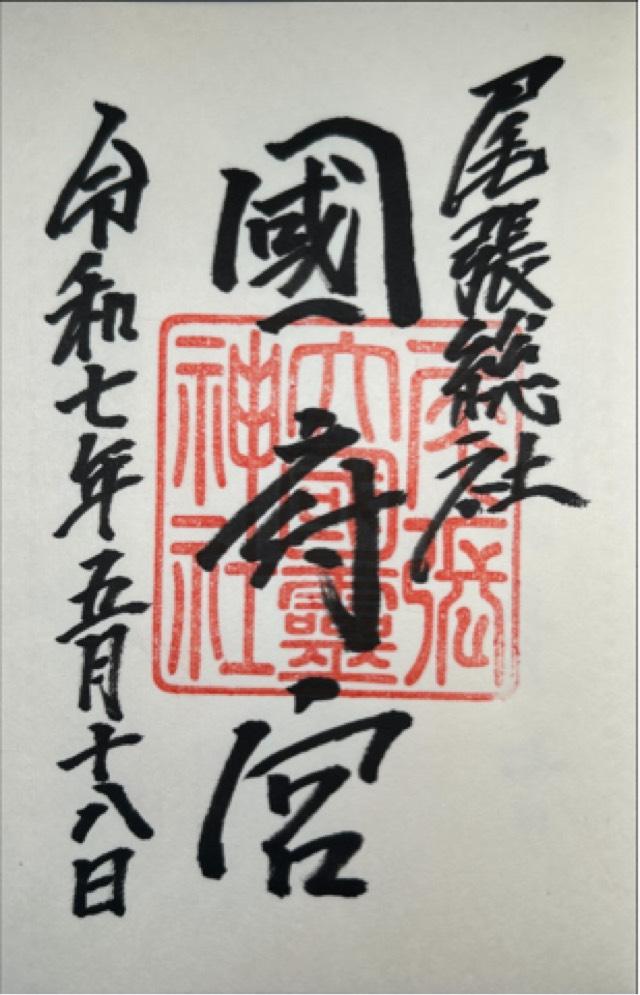 尾張総社
國府宮
令和七年五月十八日
尾張
大國靈
神社